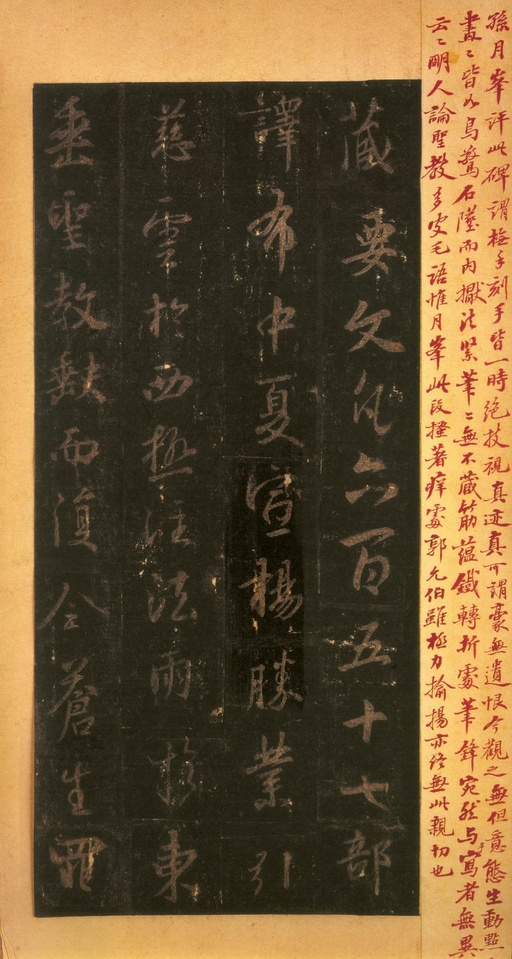 孫月峯評此碑謂摹手刻手皆一時絶技視真迹真可謂豪無遺恨今觀之無但意態生動點
畫〻皆如鳥驚石墜而内擫法緊筆〻無不藏筋蘊鐵轉折處筆鋒宛然与手寫者無異
云〻明人論聖教多皮毛語惟月峯此段搔着痒處郭允伯雖極力揄揚亦終無此親切也
藏要文凡六百五十七部
譯布中夏宣揚勝業引
慈雲於西極注法雨於東
垂聖教缺而復全蒼生罪